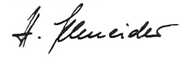 H. Schneider